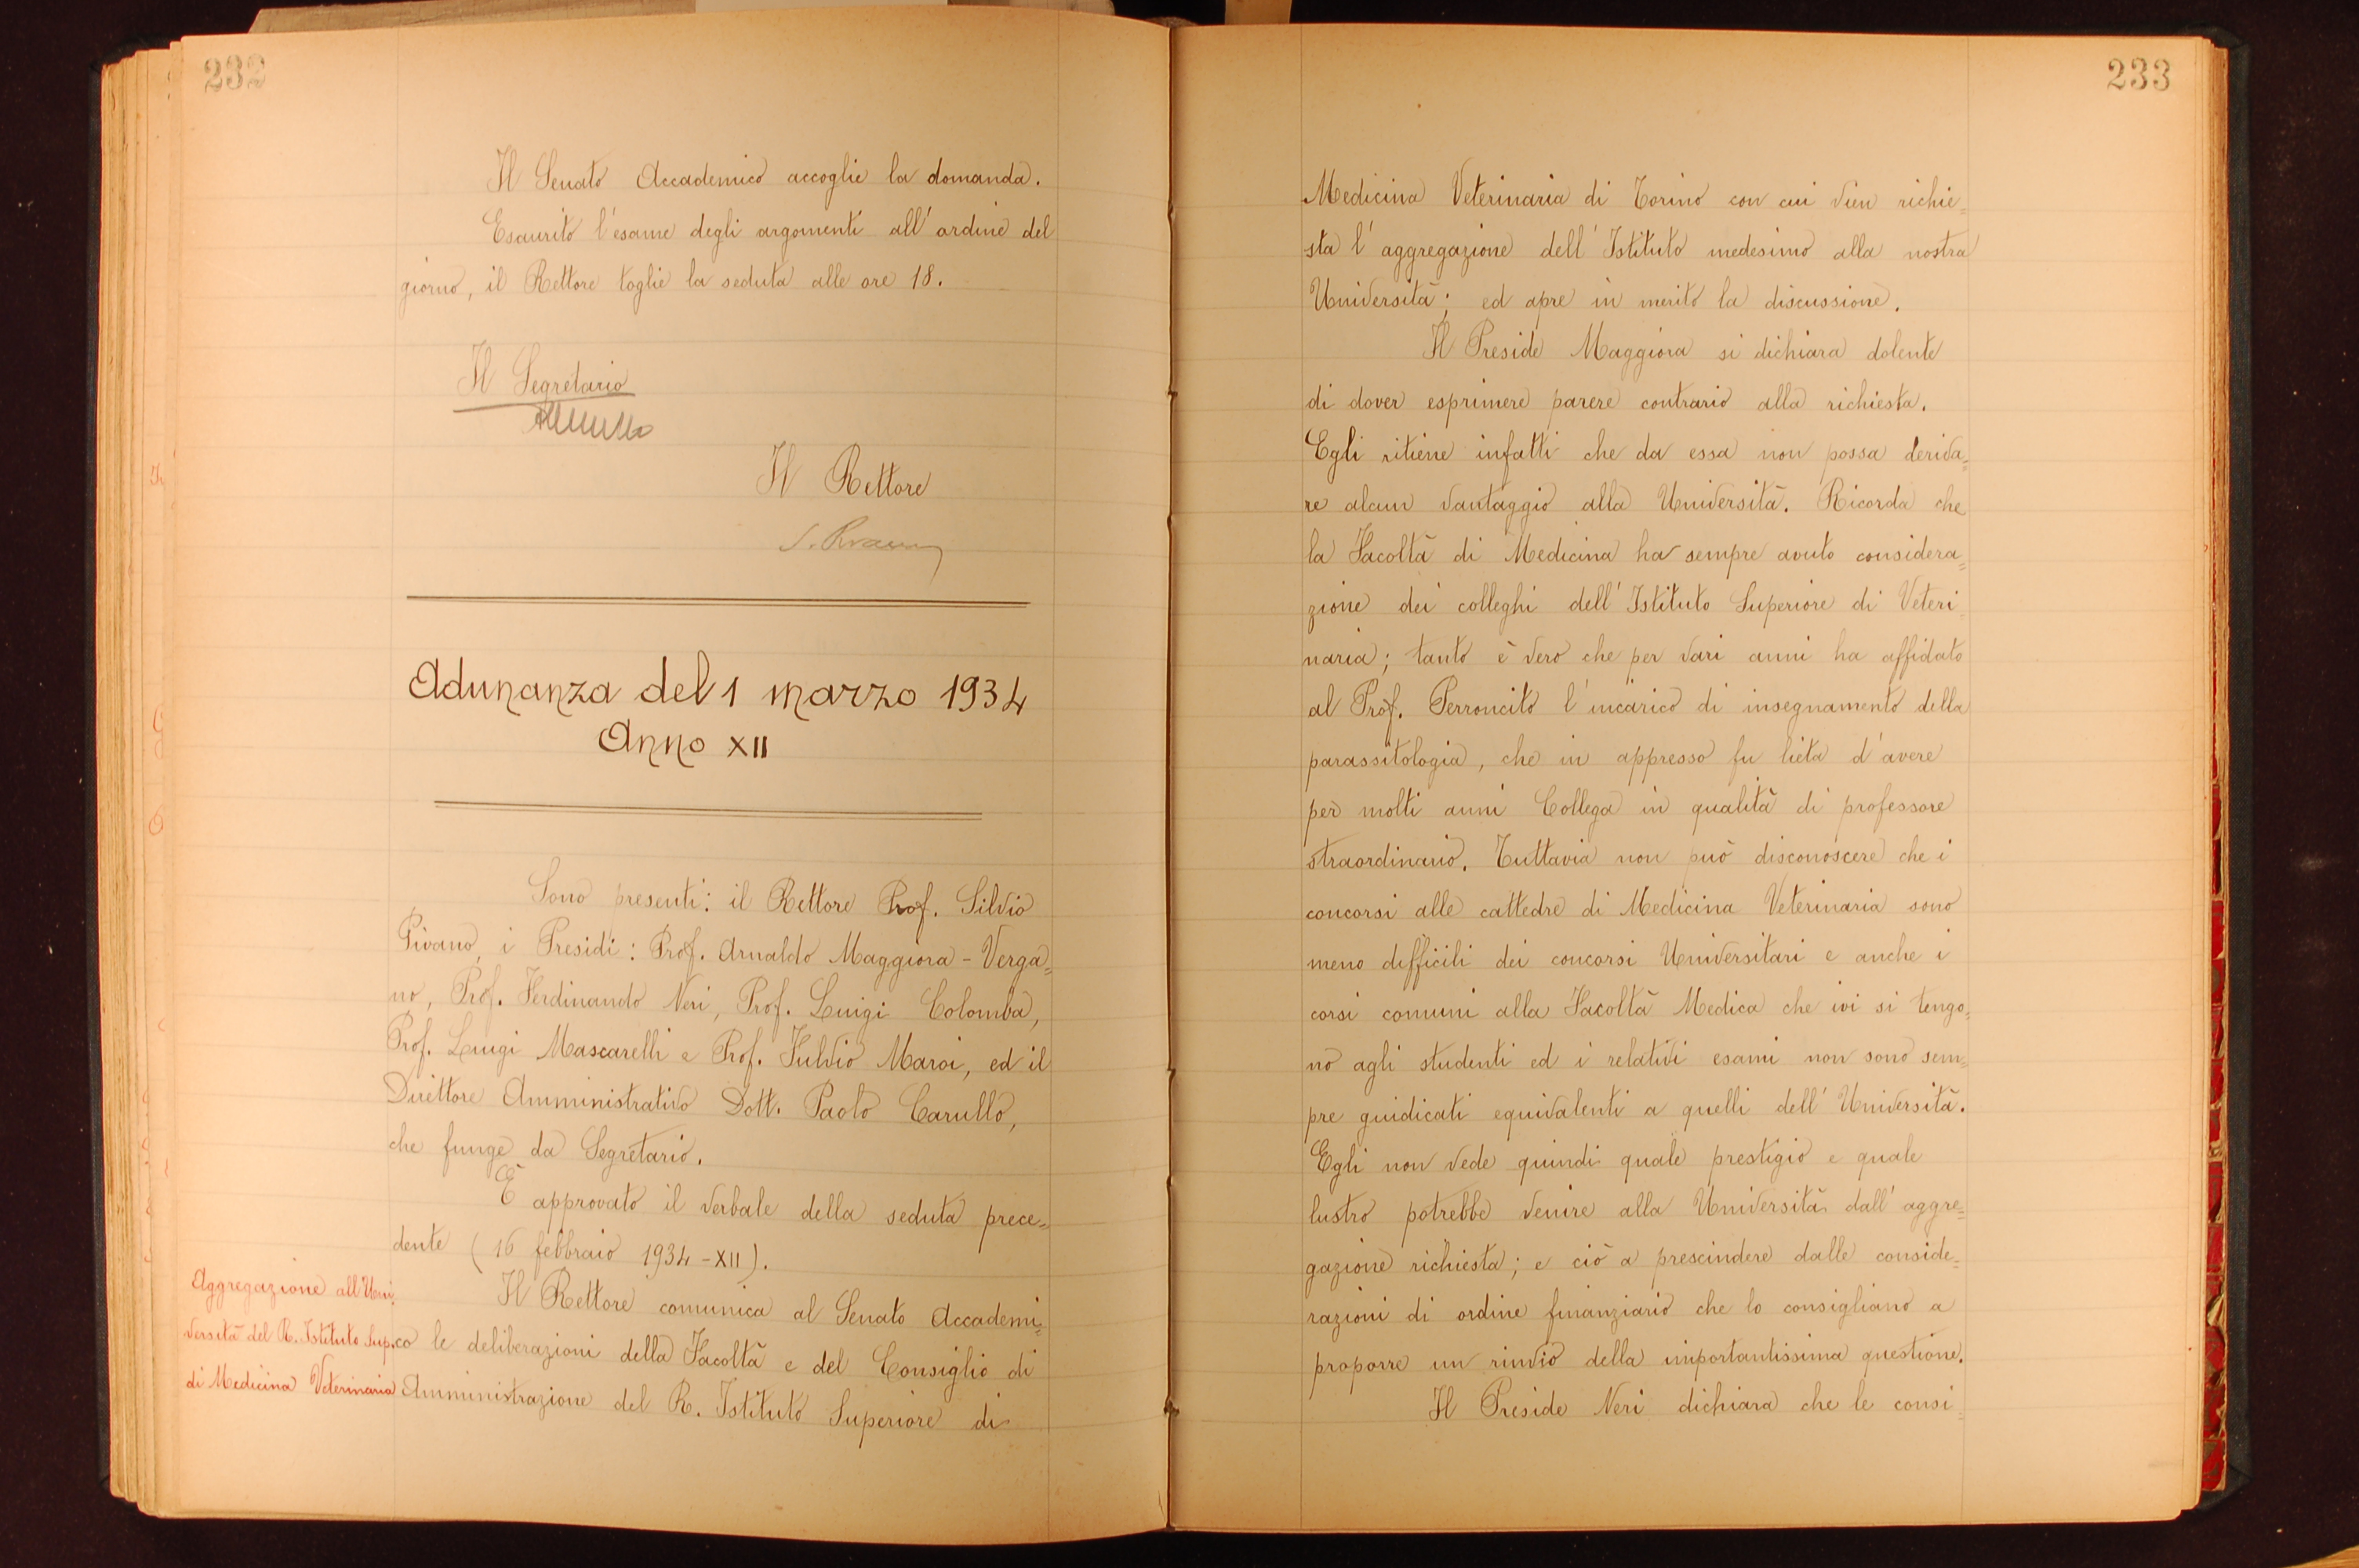 232
Il Senato Accademico accoglie la domanda.
Esaurito l'esame degli argomenti all'ordine del
giorno, il Rettore toglie la seduta alle ore 18.
Il Segretario
Il Rettore
Adunanza del 1 marzo 1934
Anno XII
Sono presenti: il Rettore Prof. Silvio
Pivano, i Presidi: Prof. Arnaldo Maggiora-Verga=
no, Prof. Ferdinando Neri, Prof. Luigi Colomba,
Prof. Luigi Mascarelli e Prof. Fulvio Maroi, ed il
Direttore Amministrativo Dott. Paolo Carullo,
che funge da Segretario.
È approvato il verbale della seduta prece=
dente (16 febbraio 1934-XII).
Aggregazione all'Uni=
versità del R. Istituto Sup.
di Medicina Veterinaria
Il Rettore comunica al Senato Accademi=
co le deliberazioni della Facoltà e del Consiglio di
Amministrazione del R. Istituto Superiore di
233
Medicina Veterinaria di Torino con cui vien richie=
sta l'aggregazione dell'Istituto medesimo alla nostra
Università; ed apre in merito la discussione.
Il Preside Maggiora si dichiara dolente
di dover esprimere parere contrario alla richiesta.
Egli ritiene infatti che da essa non possa deriva=
re alcun vantaggio alla Università. Ricorda che
la Facoltà di Medicina ha sempre avuto considera=
zione dei colleghi dell'Istituto Superiore di Veteri=
naria; tanto è vero che per vari anni ha affidato
al Prof. Perroncito l'incarico di insegnamento della
parassitologia, che in appresso fu lieta d'avere
per molti anni Collega in qualità di professore
straordinario. Tuttavia non può disconoscere che i
concorsi alle cattedre di Medicina Veterinaria sono
meno difficili dei concorsi Universitari e anche i
corsi comuni alla Facoltà Medica che ivi si tengo=
no agli studenti ed i relativi esami non sono sem=
pre guidicati equivalenti a quelli dell'Università.
Egli non vede quindi quale prestigio e quale
lustro potrebbe venire alla Università dall'aggre=
gazione richiesta; e ciò a prescindere dalle conside=
razioni di ordine finanziario che lo consigliano a
proporre un rinvio della importantissima questione.
Il Preside Neri dichiara che le consi=